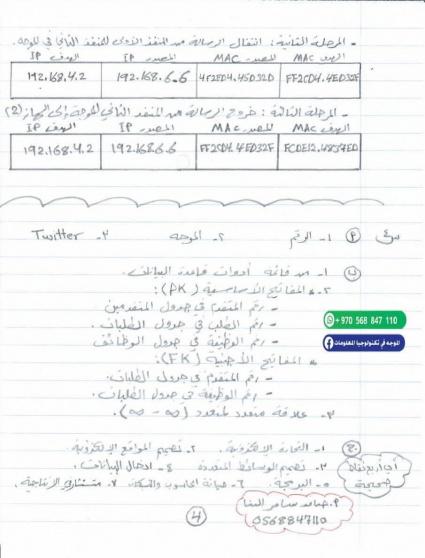 - المرحلة الثانية : انتقال الرسالة من المنفذ الأول للمنفذ الثاني في الموجه.
الهدف MAC المصدر MAC المصدر IP الهدف IP
FF2CD4.4ED32F 4F2ED4.45D32D 192.168.6.6 192.168.4.2
- المرحلة الثالثة : خروج الرسالة من المنفذ الثاني للموجه إلى الجهاز (2)
الهدف MAC المصدر MAC المصدر IP الهدف IP
FCDE12.48C4ED FF2CD4.4ED32F 192.168.6.6 192.168.4.2
س4 أ 1- الرقم 2- الموجه 3- Twitter
ب 1- من قائمة أدوات قاعدة البيانات.
2- * المفاتيح الأساسية (PK):
- رقم المتقدم في جدول المتقدمين
- رقم الطلب في جدول الطلبات.
- رقم الوظيفة في جدول الوظائف
* المفاتيح الأجنبية (FK):
- رقم المتقدم في جدول الطلبات.
- رقم الوظيفة في جدول الطلبات.
3- علاقة متعدد لمتعدد (∞ - ∞).
+ 970 568 847 110
الموجه في تكنولوجيا المعلومات
ج 1- التجارة الإلكترونية. 2- تصميم المواقع الإلكترونية.
3- تصميم الوسائط المتعددة 4- ادخال البيانات.
5- البرمجة. 6- صيانة الحاسوب والشبكة. 7- مستشاري الإنتاجية.
أي أربع نقاط
صحيحة
0568847110
4